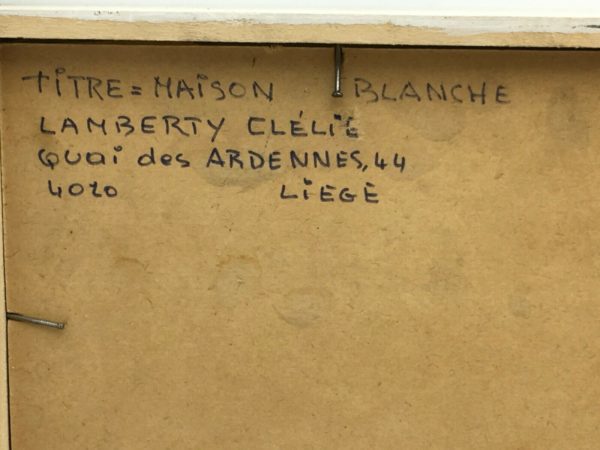 TITRE = MAISON BLANCHE
LAMBERTY CLÉLIE
QUAI des ARDENNES, 44
4020 LIEGE